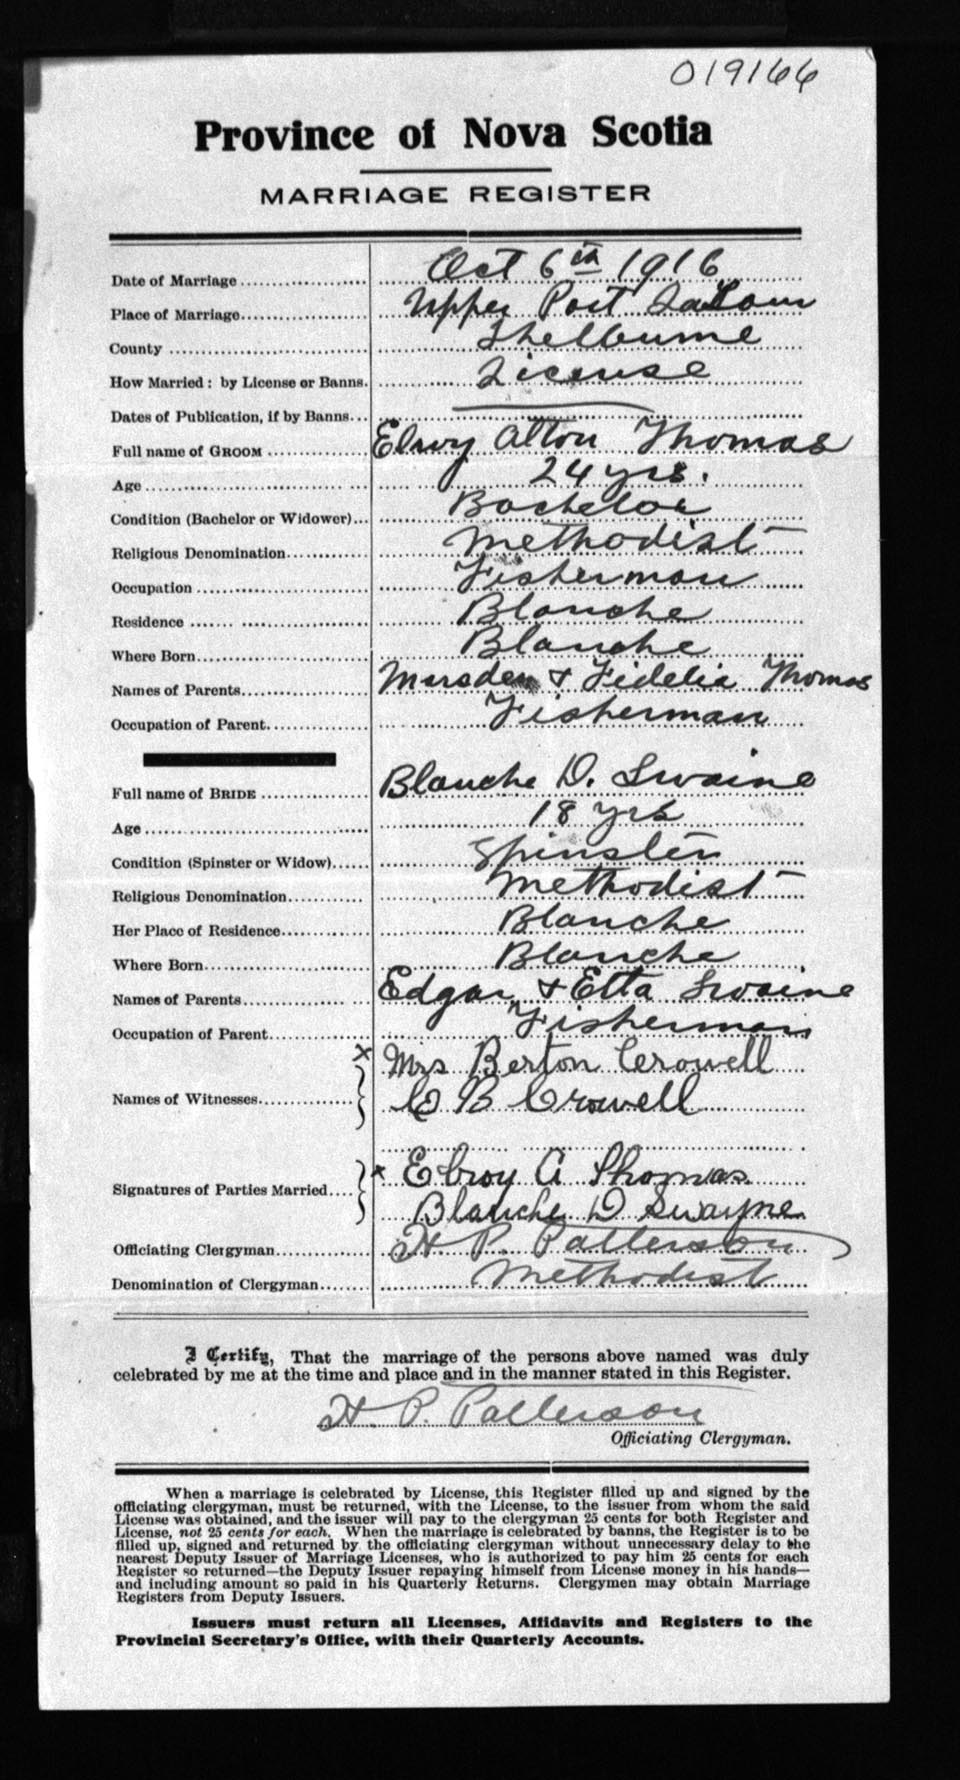 019166
Province of Nova Scotia
MARRIAGE REGISTER
Date of Marriage Oct 6th 1916
Place of Marriage Upper Port LaTour
County Shelburne
How Married: by License or Banns. License
Dates of Publication, if by Banns
Full name of GROOM Elroy Alton Thomas
Age 24 yrs.
Condition (Bachelor or Widower) Bachelor
Religious Denomination Methodist
Occupation Fisherman
Residence Blanche
Where Born Blanche
Names of Parents & Fidelia Thomas
Occupation of Parent Fisherman
Full name of BRIDE Blanche D. Swaine
Age 18 yrs
Condition (Spinster or Widow) Spinster
Religious Denomination Methodist
Her Place of Residence Blanche
Where Born Blanche
Names of Parents Edgar & Etta Swaine
Occupation of Parent Fisherman
x Mrs Berton Crowell
Names of Witnesses B Crowell
x Elroy A Thomas
Signatures of Parties Married
Blanche D Swayne
Officiating Clergyman H. P. Patterson
Denomination of Clergyman Methodist
I Certify, That the marriage of the persons above named was duly
celebrated by me at the time and place and in the manner stated in this Register.
H. P. Patterson
Officiating Clergyman.
When a marriage is celebrated by License, this Register filled up and signed by the
officiating clergyman, must be returned, with the License, to the issuer from whom the said
License was obtained, and the issuer will pay to the clergyman 25 cents for both Register and
License, not 25 cents for each. When the marriage is celebrated by banns, the Register is to be
filled up, signed and returned by the officiating clergyman without unnecessary delay to the
nearest Deputy Issuer of Marriage Licenses, who is authorized to pay him 25 cents for each
Register so returned—the Deputy Issuer repaying himself from License money in his hands—
and including amount so paid in his Quarterly Returns. Clergymen may obtain Marriage
Registers from Deputy Issuers.
Issuers must return all Licenses, Affidavits and Registers to the
Provincial Secretary's Office, with their Quarterly Accounts.